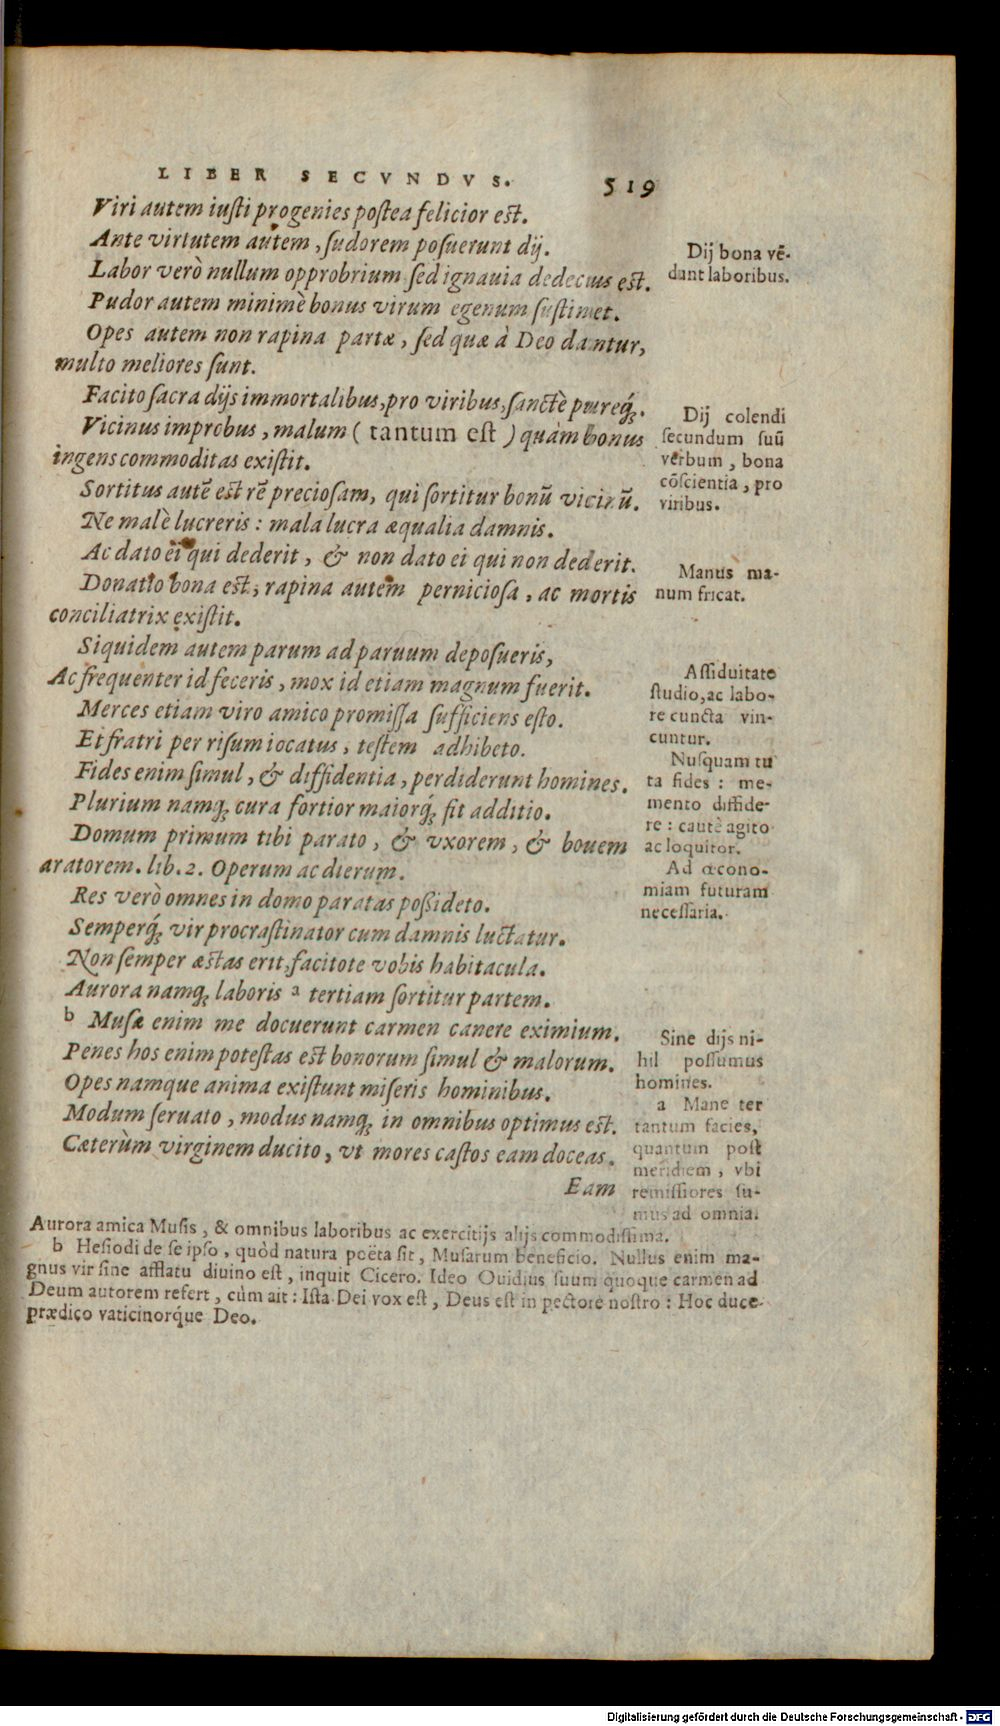 LIBER SECVNDVS. 519
Viri autem iusti progenies postea felicior est.
Ante virtutem autem, sudorem posuerunt dij.
Labor verò nullum opprobrium sed ignauia dedecus est.
Pudor autem minimè bonus virum egenum sustinet.
Opes autem non rapina partæ, sed quæ à Deo dantur,
multo meliores sunt.
Facito sacra dijs immortalibus, pro viribus, sanctè pureq́;.
Vicinus improbus, malum (tantum est) quàm bonus
ingens commoditas existit.
Sortitus autē est rē preciosam, qui sortitur bonū vicinū.
Ne malè lucreris: mala lucra æqualia damnis.
Ac dato ei qui dederit, & non dato ei qui non dederit.
Donatio bona est, rapina autem perniciosa, ac mortis
conciliatrix existit.
Siquidem autem parum ad paruum deposueris,
Ac frequenter id feceris, mox id etiam magnum fuerit.
Merces etiam viro amico promissa sufficiens esto.
Et fratri per risum iocatus, testem adhibeto.
Fides enim simul, & diffidentia, perdiderunt homines.
Plurium namq; cura fortior maiorq́; fit additio.
Domum primum tibi parato, & vxorem, & bouem
aratorem. lib. 2. Operum ac dierum.
Res verò omnes in domo paratas possideto.
Semperq́; vir procrastinator cum damnis luctatur.
Non semper æstas erit, facitote vobis habitacula.
Aurora namq; laboris a tertiam sortitur partem.
b Musæ enim me docuerunt carmen canere eximium.
Penes hos enim potestas est bonorum simul & malorum.
Opes namque anima existunt miseris hominibus.
Modum seruato, modus namq; in omnibus optimus est.
Cæterùm virginem ducito, vt mores castos eam doceas.
Eam
Dij bona vē-
dunt laboribus.
Dij colendi
secundum suū
verbum, bona
cōscientia, pro
viribus.
Manus ma-
num fricat.
Assiduitate
studio, ac labo-
re cuncta vin-
cuntur.
Nusquam tu
ta fides: me-
mento diffide-
re: cautè agito
ac loquitor.
Ad œcono-
miam futuram
necessaria.
Sine dijs ni-
hil possumus
homines.
a Mane ter
tantum facies,
quantum post
meridiem, vbi
remissiores su-
mus ad omnia.
Aurora amica Musis, & omnibus laboribus ac exercitijs alijs commodissima.
b Hesiodi de se ipso, quòd natura poëta sit, Musarum beneficio. Nullus enim ma-
gnus vir sine afflatu diuino est, inquit Cicero. Ideo Ouidius suum quoque carmen ad
Deum autorem refert, cùm ait: Ista Dei vox est, Deus est in pectore nostro: Hoc duce
prædico vaticinorq́ue Deo.
Digitalisierung gefördert durch die Deutsche Forschungsgemeinschaft - DFG